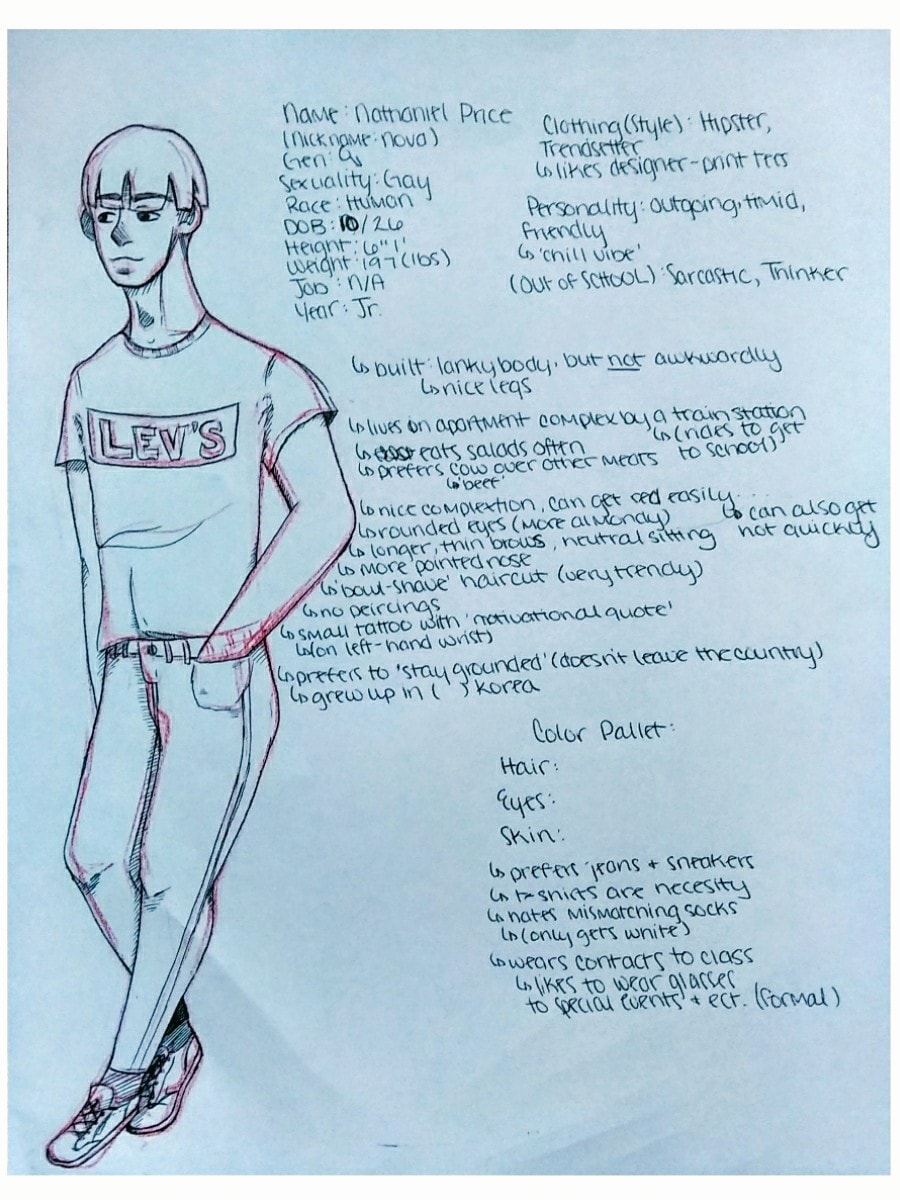 Name: Nathaniel Price
(nickname: Nova)
Gen:
Sexuality: Gay
Race: Human
DOB: 10/26
Height: 6"1'
Weight: 197(lbs)
Job: N/A
Year: Jr.
Clothing(style): Hipster,
Trendsetter
↳ likes designer-print tees
Personality: outgoing, timid,
friendly
↳ 'chill vibe'
(out of school): Sarcastic, Thinker
↳ built: lanky body, but not awkwordly
↳ nice legs
↳ lives on apartment complex by a train station
↳ (rides to get
to school)
↳ eats salads often
↳ prefers cow over other meats
↳ 'beef'
↳ nice complextion, can get red easily...
↳ can also get
hot quickly
↳ rounded eyes (more almondy)
↳ longer, thin brows, neutral sitting
↳ more pointed nose
↳ 'bowl-shave' haircut (very trendy)
↳ no peircings
↳ small tattoo with 'motivational quote'
↳ (on left-hand wrist)
↳ prefers to 'stay grounded' (doesn't leave the country)
↳ grew up in ( ) Korea
Color Pallet:
Hair:
Eyes:
Skin:
↳ prefers jeans + sneakers
↳ t-shirts are necesity
↳ hates mismatching socks
↳ (only gets white)
↳ wears contacts to class
↳ likes to wear glasses
to special events + ect. (formal)
LEV'S